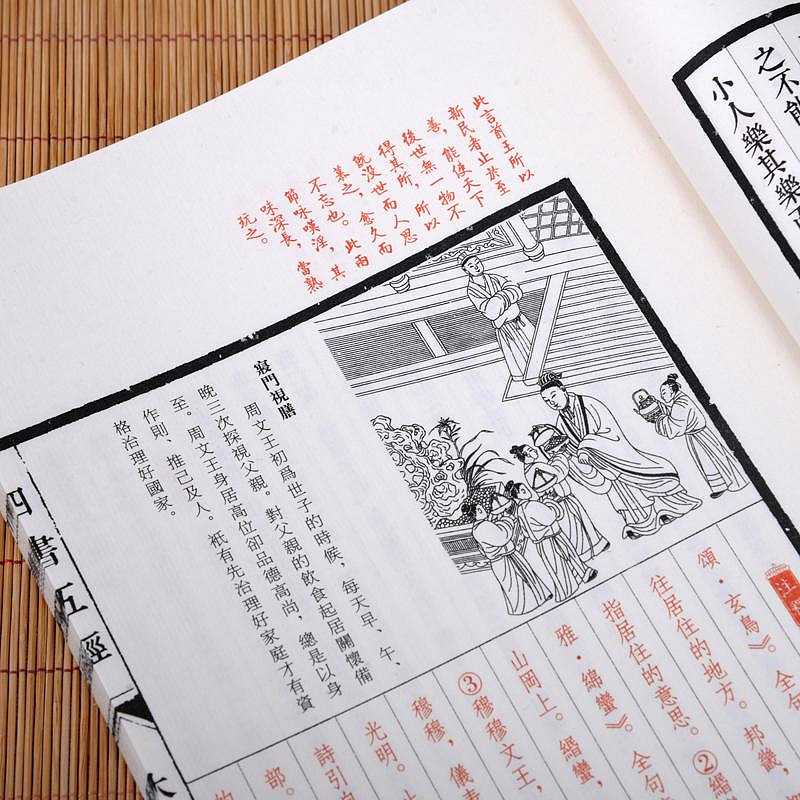 之不
小人樂其樂
此言前王所以
新民者止於至
善，能使天下
後世無一物不
得其所，所以
既没世而人思
慕之，愈久而
不忘也。此兩
節咏嘆淫，其
味深長，當熟
玩之。
寢門視膳
周文王初爲世子的時候，每天早、午、
晚三次探視父親。對父親的飲食起居關懷備
至。周文王身居高位卻品德高尚，總是以身
作則、推己及人。祇有先治理好家庭才有資
格治理好國家。
注
頌·玄鳥》。全句
往居住的地方。邦畿，
指居住的意思。②緡
雅·綿蠻》。全句
山岡上。緡蠻，
③穆穆文王，
穆穆，儀表
光明。
詩引
部。
的
四書五經
大